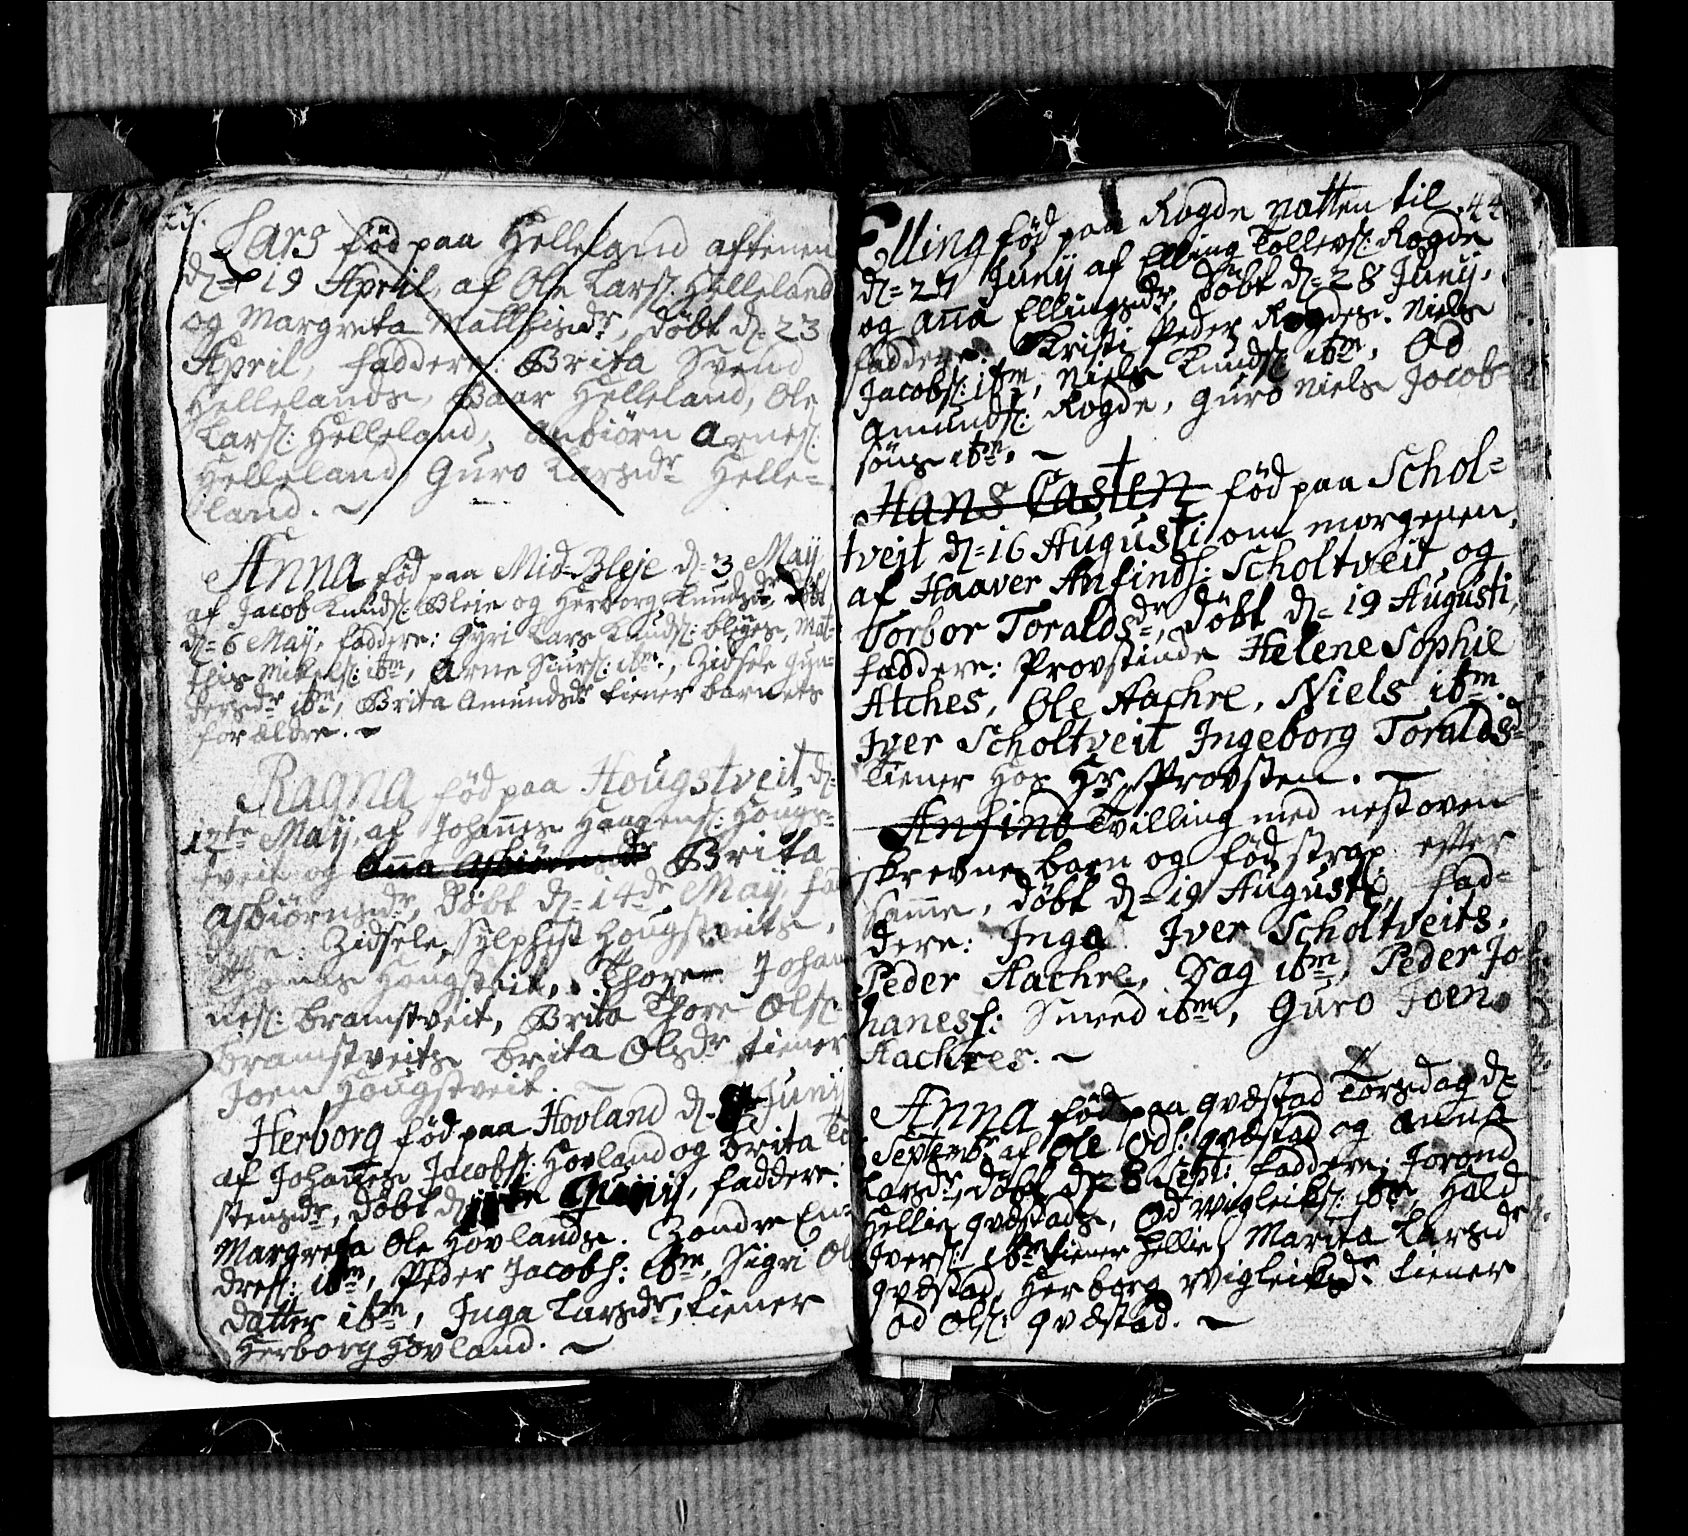 23.
Lars fød paa Helleland aftenen
d. 19 April, af Ole Larsſ: Helleland
og Margreta Matthisdr, døbt d. 23
April, faddere: Brita Svend
Hellelands, Baar Helleland, Ole
Larsſ: Helleland, Anbiørn Arnesſ:
Helleland, Guro Larsdr Helle=
land.
Anna fød paa Mid-Bleje d. 3 Maij
af Jacob Knudsſ: Bleje og Herborg Knudsdr, døbt
d. 6 Maij, faddere: Gyri Lars Knudsſ: Blejes, Mat-
this Mikelsſ: ibm, Arne Siursſ: ibm, Zidsele Gun-
dersdr ibm, Brita Amundsdr tiener barnets
forældre.
Ragna fød paa Hougstveit d.
12te Maij, af Johannes Haagensſ: Hougs-
tveit og Anna Asbiørnsdr Brita
Asbiørnsdr, døbt d. 14de Maij, fad
dere: Zidsele Sylphest Hougstveits,
Thomas Hougstveit, Thore Johan
nesſ: Bramstveit, Brita Thore Olsſ:
Bramstveits Brita Olsdr tiener
Joen Hougstveit.
Herborg fød paa Hovland d. Junij
af Johannes Jacobsſ: Hovland og Brita To
stensdr, døbt d. Junij, faddere:
Margreta Ole Hovlands. Zondre En-
dresſ: ibm, Peder Jacobsſ: ibm, Sigri Ol
datter ibm, Inga Larsdr, tiener
Herborg Hovland.
44
Elling fød paa Rogde natten til
d. 27 Junij af Elling Tollevsſ: Rogde
og Anna Ellingsdr, døbt d. 28 Junij,
faddere: Kristi Peder Rogdes. Niels
Jacobsſ: ibm, Niels Knudsſ: ibm, Od
Amundsſ: Rogde, Guro Niels Jacob-
søns ibm.
Hans Casten fød paa Schol=
tveit d. 16 Augusti om morgenen,
af Haaver Anfindsſ: Scholtveit og
Torbor Toraldsdr, døbt d. 19 Augusti,
faddere: Provstinde Helene Sophie
Atches, Ole Aachre, Niels ibm.
Iver Scholtveit Ingeborg Toraldsd
tiener hos Hr Provsten.
Anfind Tvilling med nestoven
skrevne barn og fød strax efter
samme, døbt d. 19 Augusti, fad=
dere: Inga Iver Scholtveits,
Peder Aachre, Dag ibm, Peder Jo
hanesſ: Smed ibm, Guro Joen
Aachres.
Anna fød paa Qvæstad Torsdag d.
Septembr af Ole Odsſ: Qvæstad og Anna
Larsdr, døbt d. 28 Sept: faddere: Jorond
Hellie Qvæstads, Od Wigleiksſ: ibm, Hald
Iversſ: ibm tiener Hellie, Marita Larsdr
Qvæstad, Herborg Wigleiksdr tiener
Od Olsſ: Qvæstad.